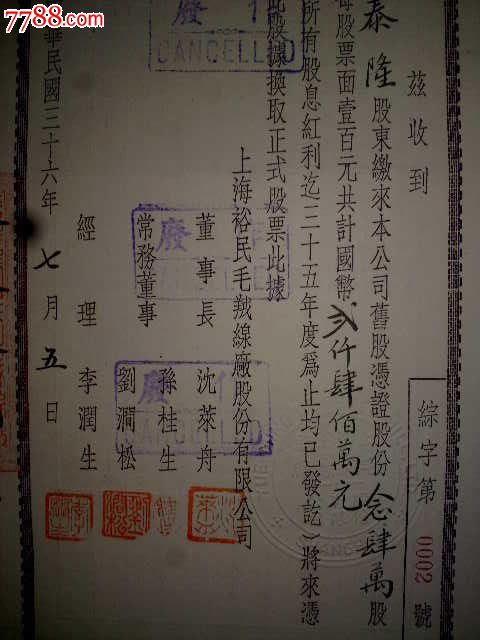 7788.com
綜字第0002號
茲收到
泰隆股東繳來本公司舊股憑證股份念肆萬股
每股票面壹百元共計國幣貳仟肆佰萬元
所有股息紅利迄三十五年度爲止均已發訖）將來憑
此股據換取正式股票此據
上海裕民毛羢線廠股份有限公司
董事長 沈萊舟
常務董事 孫桂生
劉澗松
經理 李潤生
華民國三十六年七月五日
作廢
CANCELLED
作廢
CANCELLED
作廢
CANCELLED